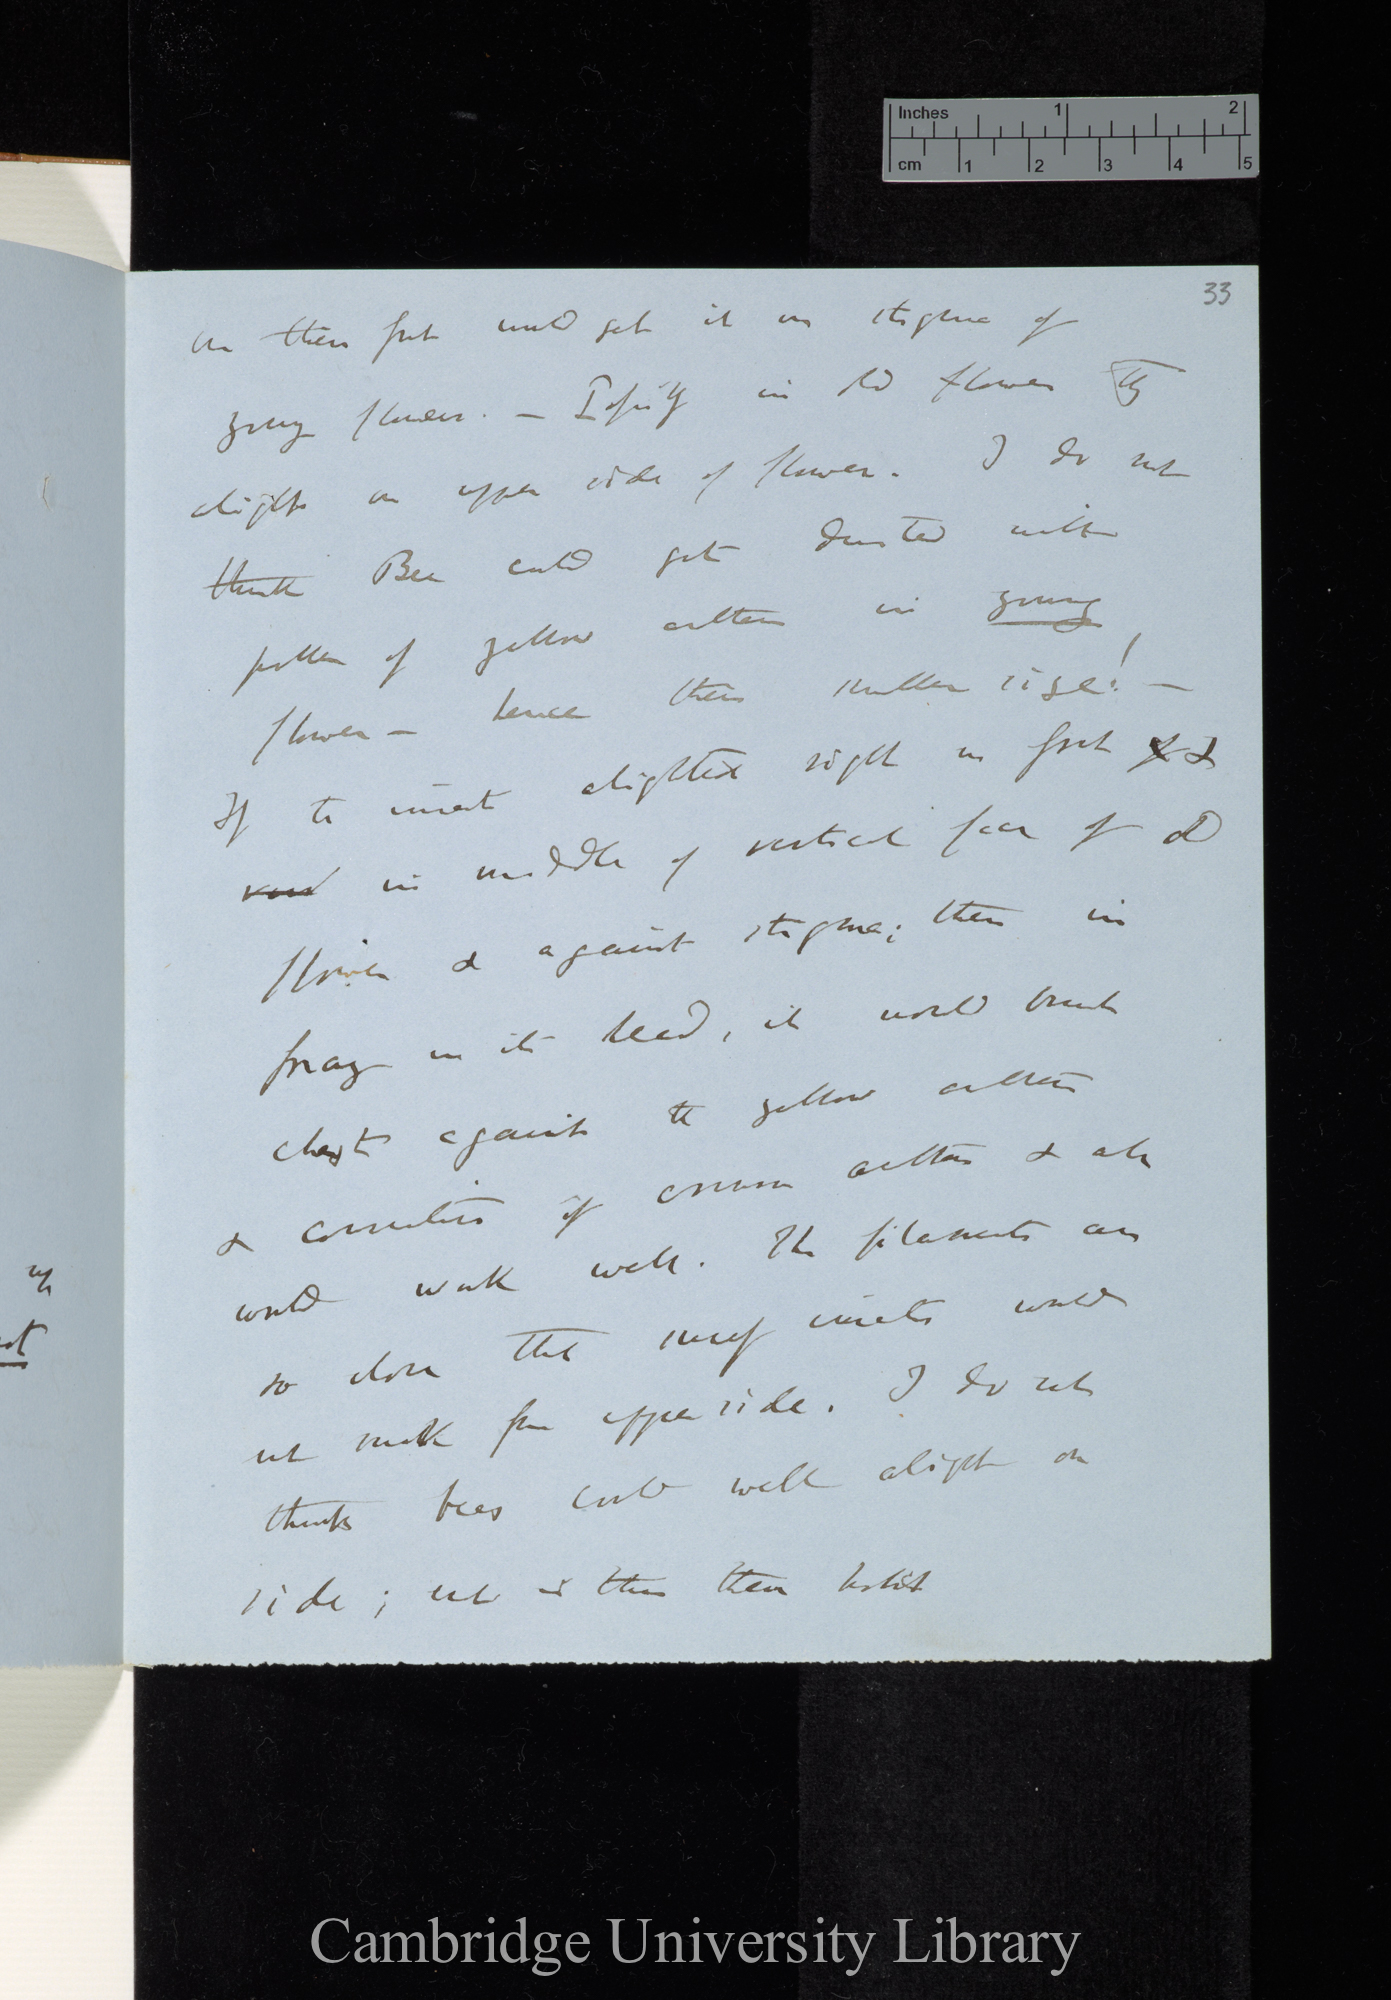 Inches 1 2
cm 1 2 3 4 5
33
on their feet would get it on stigma of
young flower. — Especially in old flower they
alights on upper side of flower. I do not
think Bee could get dusted with
pollen of yellow anthers in young
flower — hence their smaller size! —
If the insect alighted right in front &
in middle of vertical face of old
flower & against stigma; then in
forcing in its head, it would brush
chest against the yellow anthers
& connective of crimson anthers & all
would work well. The filaments are
so close that many insects would
not suck from upper side. I do not
think bees could well alight on
side; nor is this their habit
up
Cambridge University Library